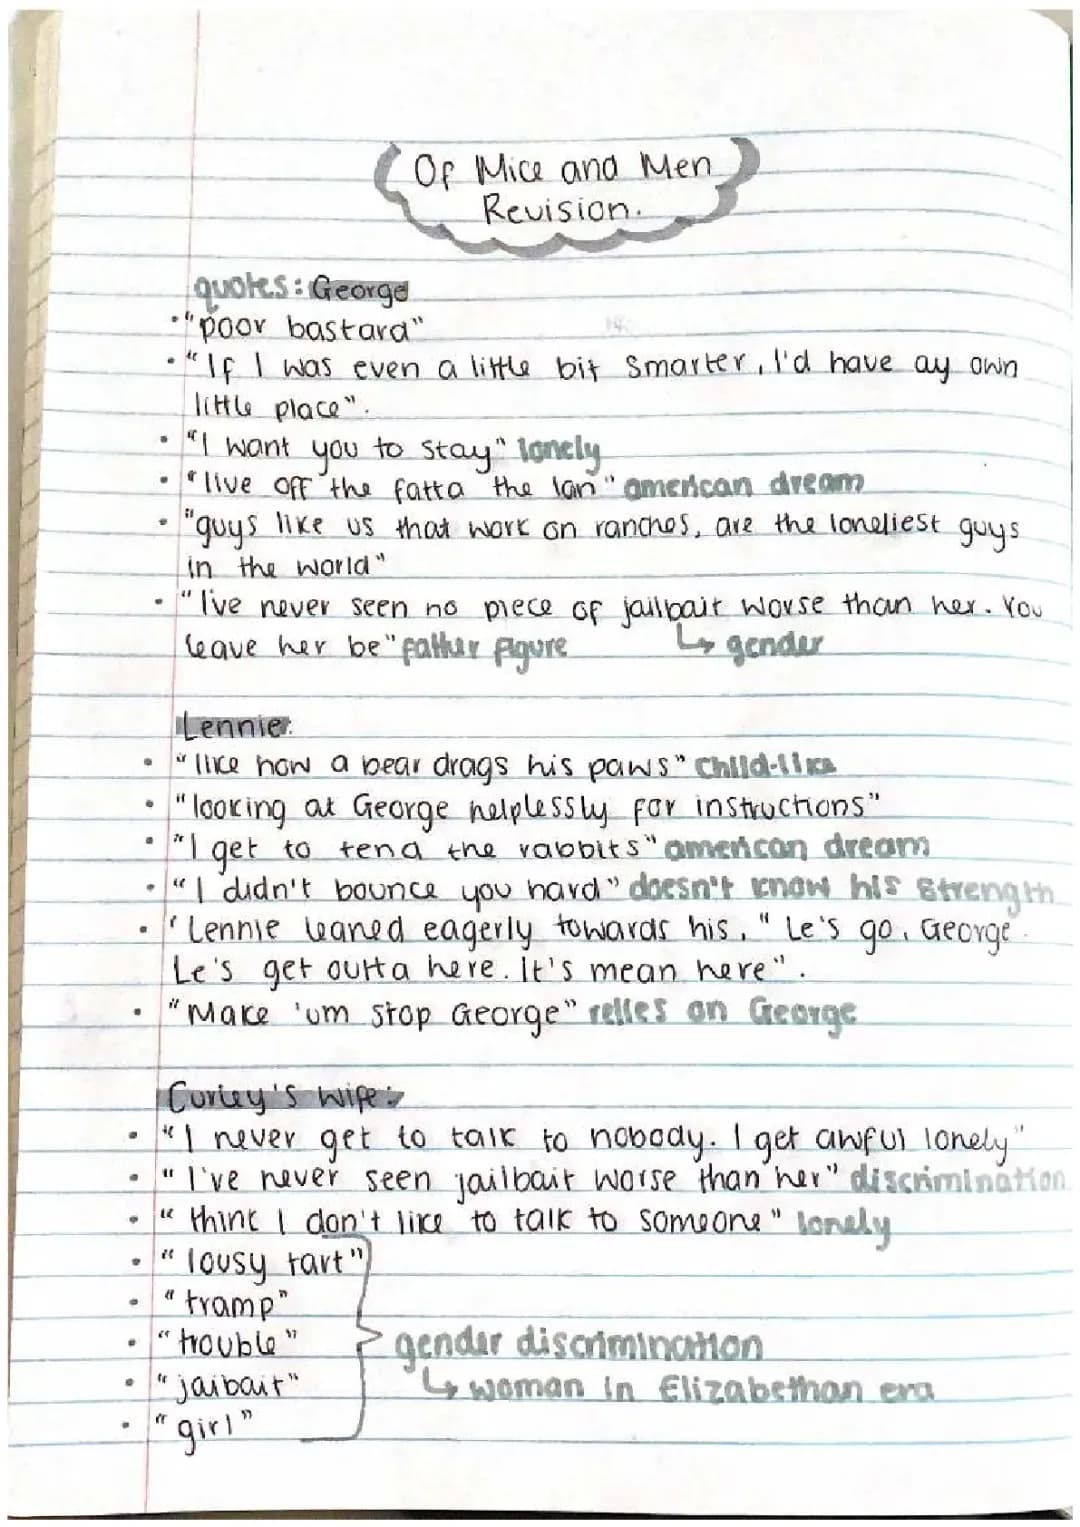 Of Mice and Men
Revision.
quotes: George
• "poor bastard"
• "If I was even a little bit smarter, I'd have ay own
little place".
• "I want you to stay" lonely
• "live off the fatta the lan" american dream
• "guys like us that work on ranches, are the loneliest guys
in the world"
• "I've never seen no piece of jailbait worse than her. You
leave her be" father figure ↳ gender
Lennie:
• "like how a bear drags his paws" Child-like
• "looking at George helplessly for instructions"
• "I get to tend the rabbits" american dream
• "I didn't bounce you hard" doesn't know his strength
• 'Lennie leaned eagerly towards his, "Le's go, George.
Le's get outta here. It's mean here".
• "Make 'um stop George" relies on George
Curley's wife:
• "I never get to talk to nobody. I get awful lonely"
• "I've never seen jailbait worse than her" discrimination
• "think I don't like to talk to someone" lonely
• "lousy tart"
• "tramp"
• "trouble"
gender discrimination
• "jaibait"
↳ woman in Elizabethan era
• "girl"